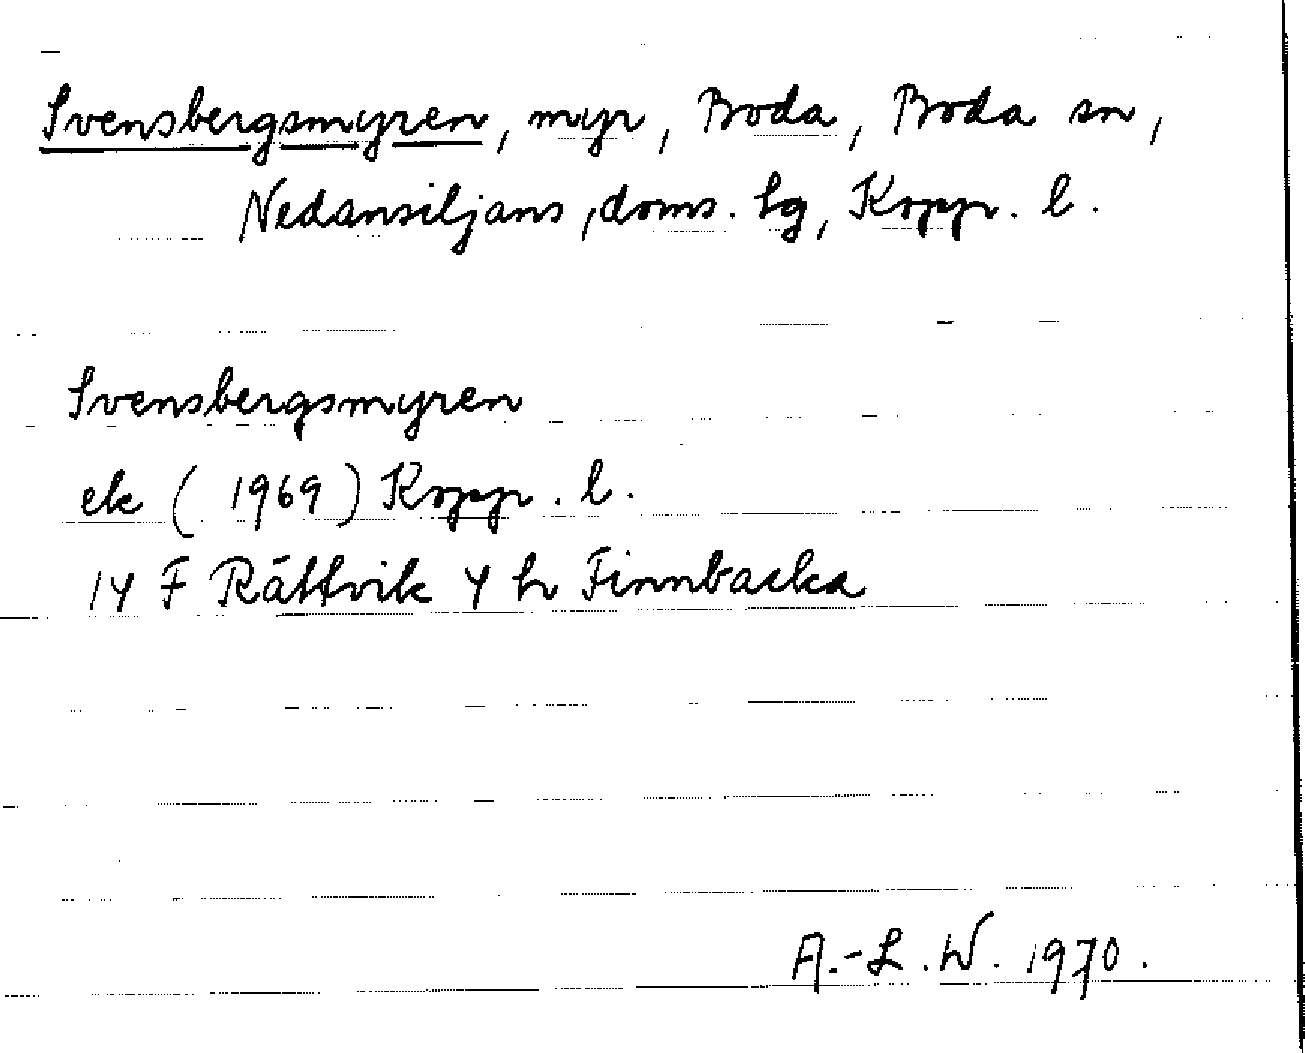 Svensbergsmyren, myr, Boda, Boda sn,
Nedansiljans, doms. lg, Kopp. l.
Svensbergsmyren
ek (1969) Kopp. l.
14 F Rättvik 4 h Finnbacka
A.-L. W. 1970.